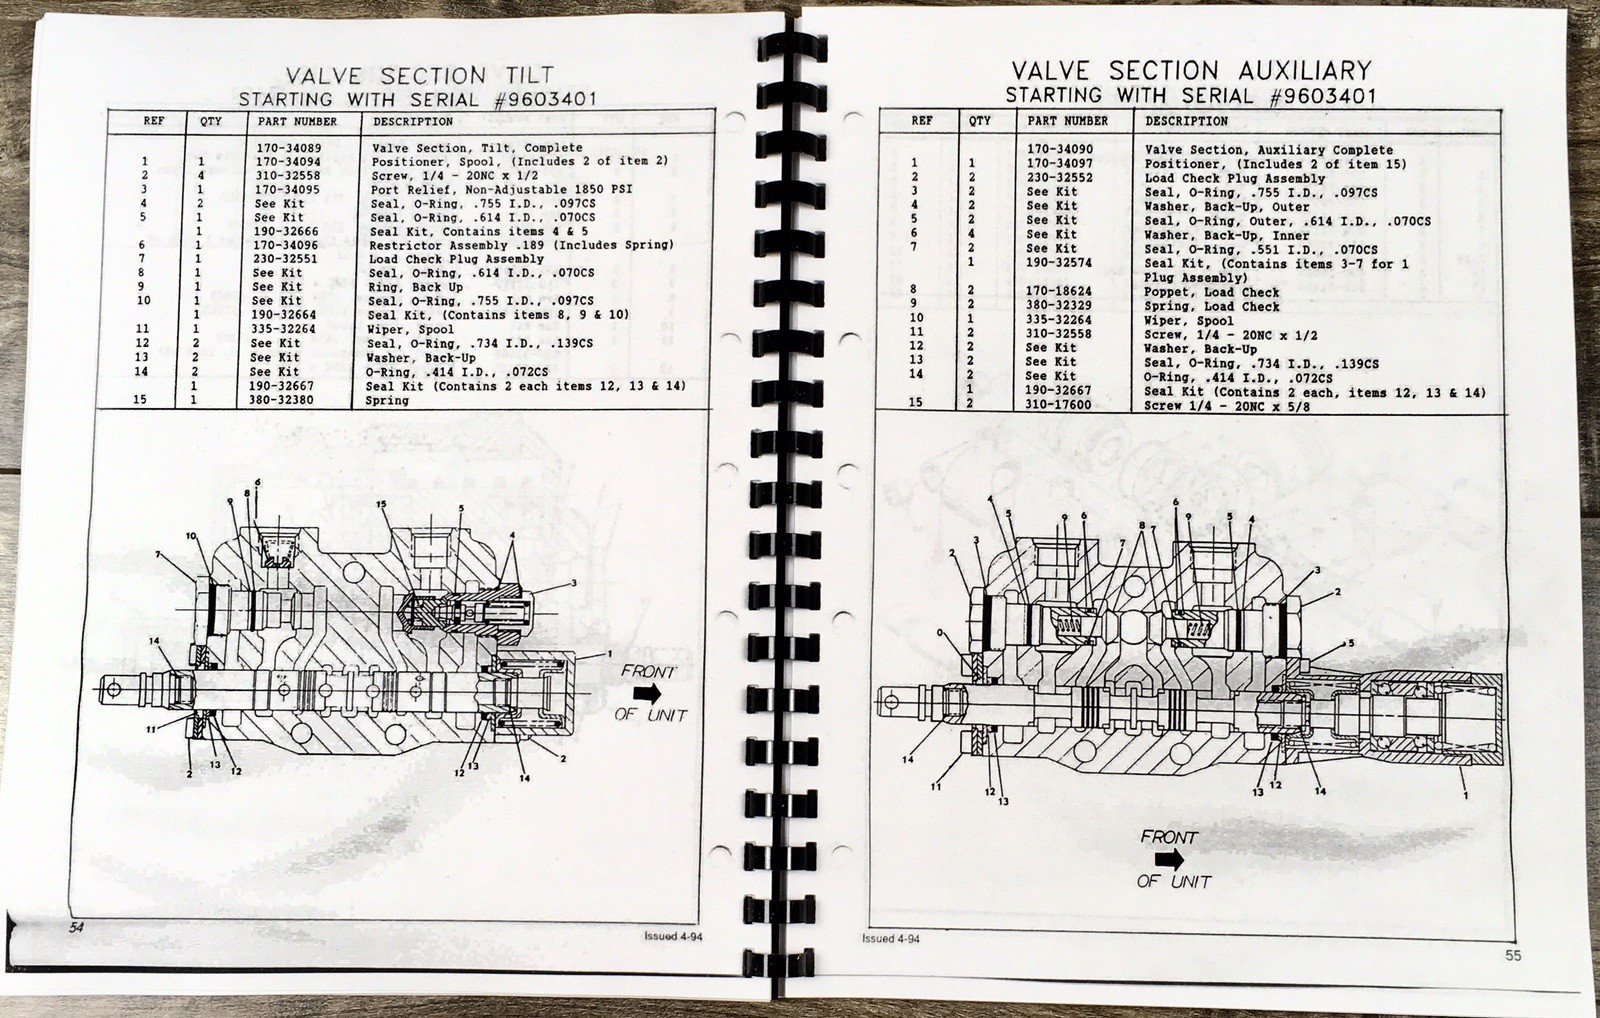 VALVE SECTION TILT
STARTING WITH SERIAL #9603401
REF QTY PART NUMBER DESCRIPTION
170-34089 Valve Section, Tilt, Complete
1 1 170-34094 Positioner, Spool, (Includes 2 of item 2)
2 4 310-32558 Screw, 1/4 - 20NC x 1/2
3 1 170-34095 Port Relief, Non-Adjustable 1850 PSI
4 2 See Kit Seal, O-Ring, .755 I.D., .097CS
5 1 See Kit Seal, O-Ring, .614 I.D., .070CS
1 190-32666 Seal Kit, Contains items 4 & 5
6 1 170-34096 Restrictor Assembly .189 (Includes Spring)
7 1 230-32551 Load Check Plug Assembly
8 1 See Kit Seal, O-Ring, .614 I.D., .070CS
9 1 See Kit Ring, Back Up
10 1 See Kit Seal, O-Ring, .755 I.D., .097CS
1 190-32664 Seal Kit, (Contains items 8, 9 & 10)
11 1 335-32264 Wiper, Spool
12 2 See Kit Seal, O-Ring, .734 I.D., .139CS
13 2 See Kit Washer, Back-Up
14 2 See Kit O-Ring, .414 I.D., .072CS
1 190-32667 Seal Kit (Contains 2 each items 12, 13 & 14)
15 1 380-32380 Spring
6
9 8 15 5
10 4
7 3
14 1
FRONT
OF UNIT
11
2 13 12 12 13 14 2
54
Issued 4-94
VALVE SECTION AUXILIARY
STARTING WITH SERIAL #9603401
REF QTY PART NUMBER DESCRIPTION
170-34090 Valve Section, Auxiliary Complete
1 1 170-34097 Positioner, (Includes 2 of item 15)
2 2 230-32552 Load Check Plug Assembly
3 2 See Kit Seal, O-Ring, .755 I.D., .097CS
4 2 See Kit Washer, Back-Up, Outer
5 2 See Kit Seal, O-Ring, Outer, .614 I.D., .070CS
6 4 See Kit Washer, Back-Up, Inner
7 2 See Kit Seal, O-Ring, .551 I.D., .070CS
1 190-32574 Seal Kit, (Contains items 3-7 for 1
Plug Assembly)
8 2 170-18624 Poppet, Load Check
9 2 380-32329 Spring, Load Check
10 1 335-32264 Wiper, Spool
11 2 310-32558 Screw, 1/4 - 20NC x 1/2
12 2 See Kit Washer, Back-Up
13 2 See Kit Seal, O-Ring, .734 I.D., .139CS
14 2 See Kit O-Ring, .414 I.D., .072CS
1 190-32667 Seal Kit (Contains 2 each, items 12, 13 & 14)
15 2 310-17600 Screw 1/4 - 20NC x 5/8
4 5 9 6 8 7 6 9 5 4
2 3 7 3 2
0 5
14 11 12 13 13 12 14 1
FRONT
OF UNIT
Issued 4-94
55